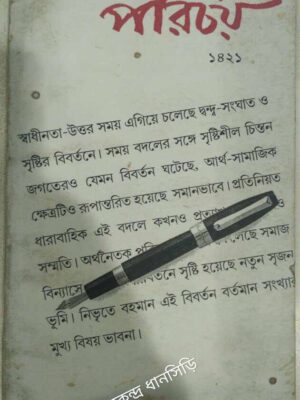 পরিচয়
১৪২১
স্বাধীনতা-উত্তর সময় এগিয়ে চলেছে দ্বন্দ্ব-সংঘাত ও
সৃষ্টির বিবর্তনে। সময় বদলের সঙ্গে সৃষ্টিশীল চিন্তন
জগতেরও যেমন বিবর্তন ঘটেছে, আর্থ-সামাজিক
ক্ষেত্রটিও রূপান্তরিত হয়েছে সমানভাবে। প্রতিনিয়ত
ধারাবাহিক এই বদলে কখনও ও
সম্মতি। অর্থনৈতিক সমাজ
বিন্যাসে সৃষ্টি হয়েছে নতুন সৃজন
ভূমি। নিভৃতে বহমান এই বিবর্তন বর্তমান সংখ্যার
মুখ্য বিষয় ভাবনা।
ধানসিড়ি